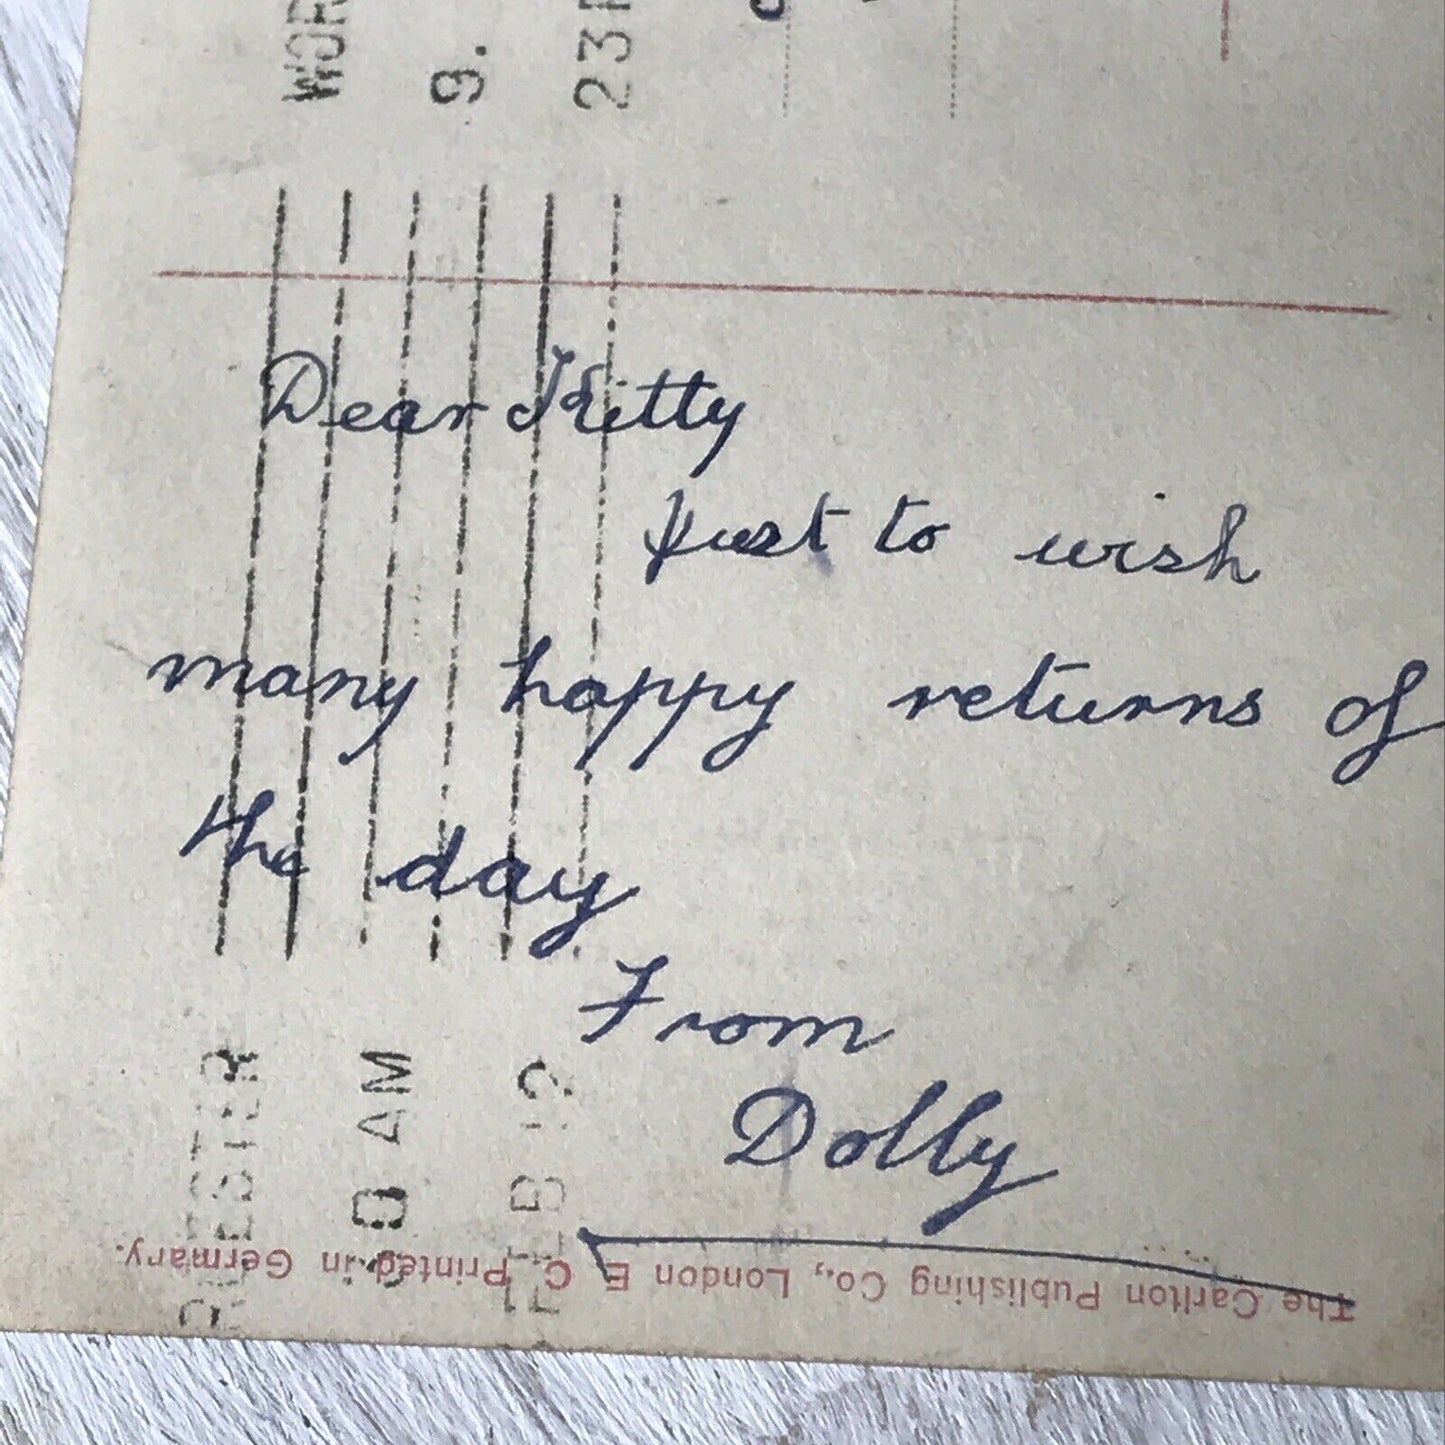 Dear Kitty
Just to wish
many happy returns of
the day
From
Dolly
The Carlton Publishing Co., London E. C. Printed in Germany.
WOR
9.
23F
AM
FEB 12